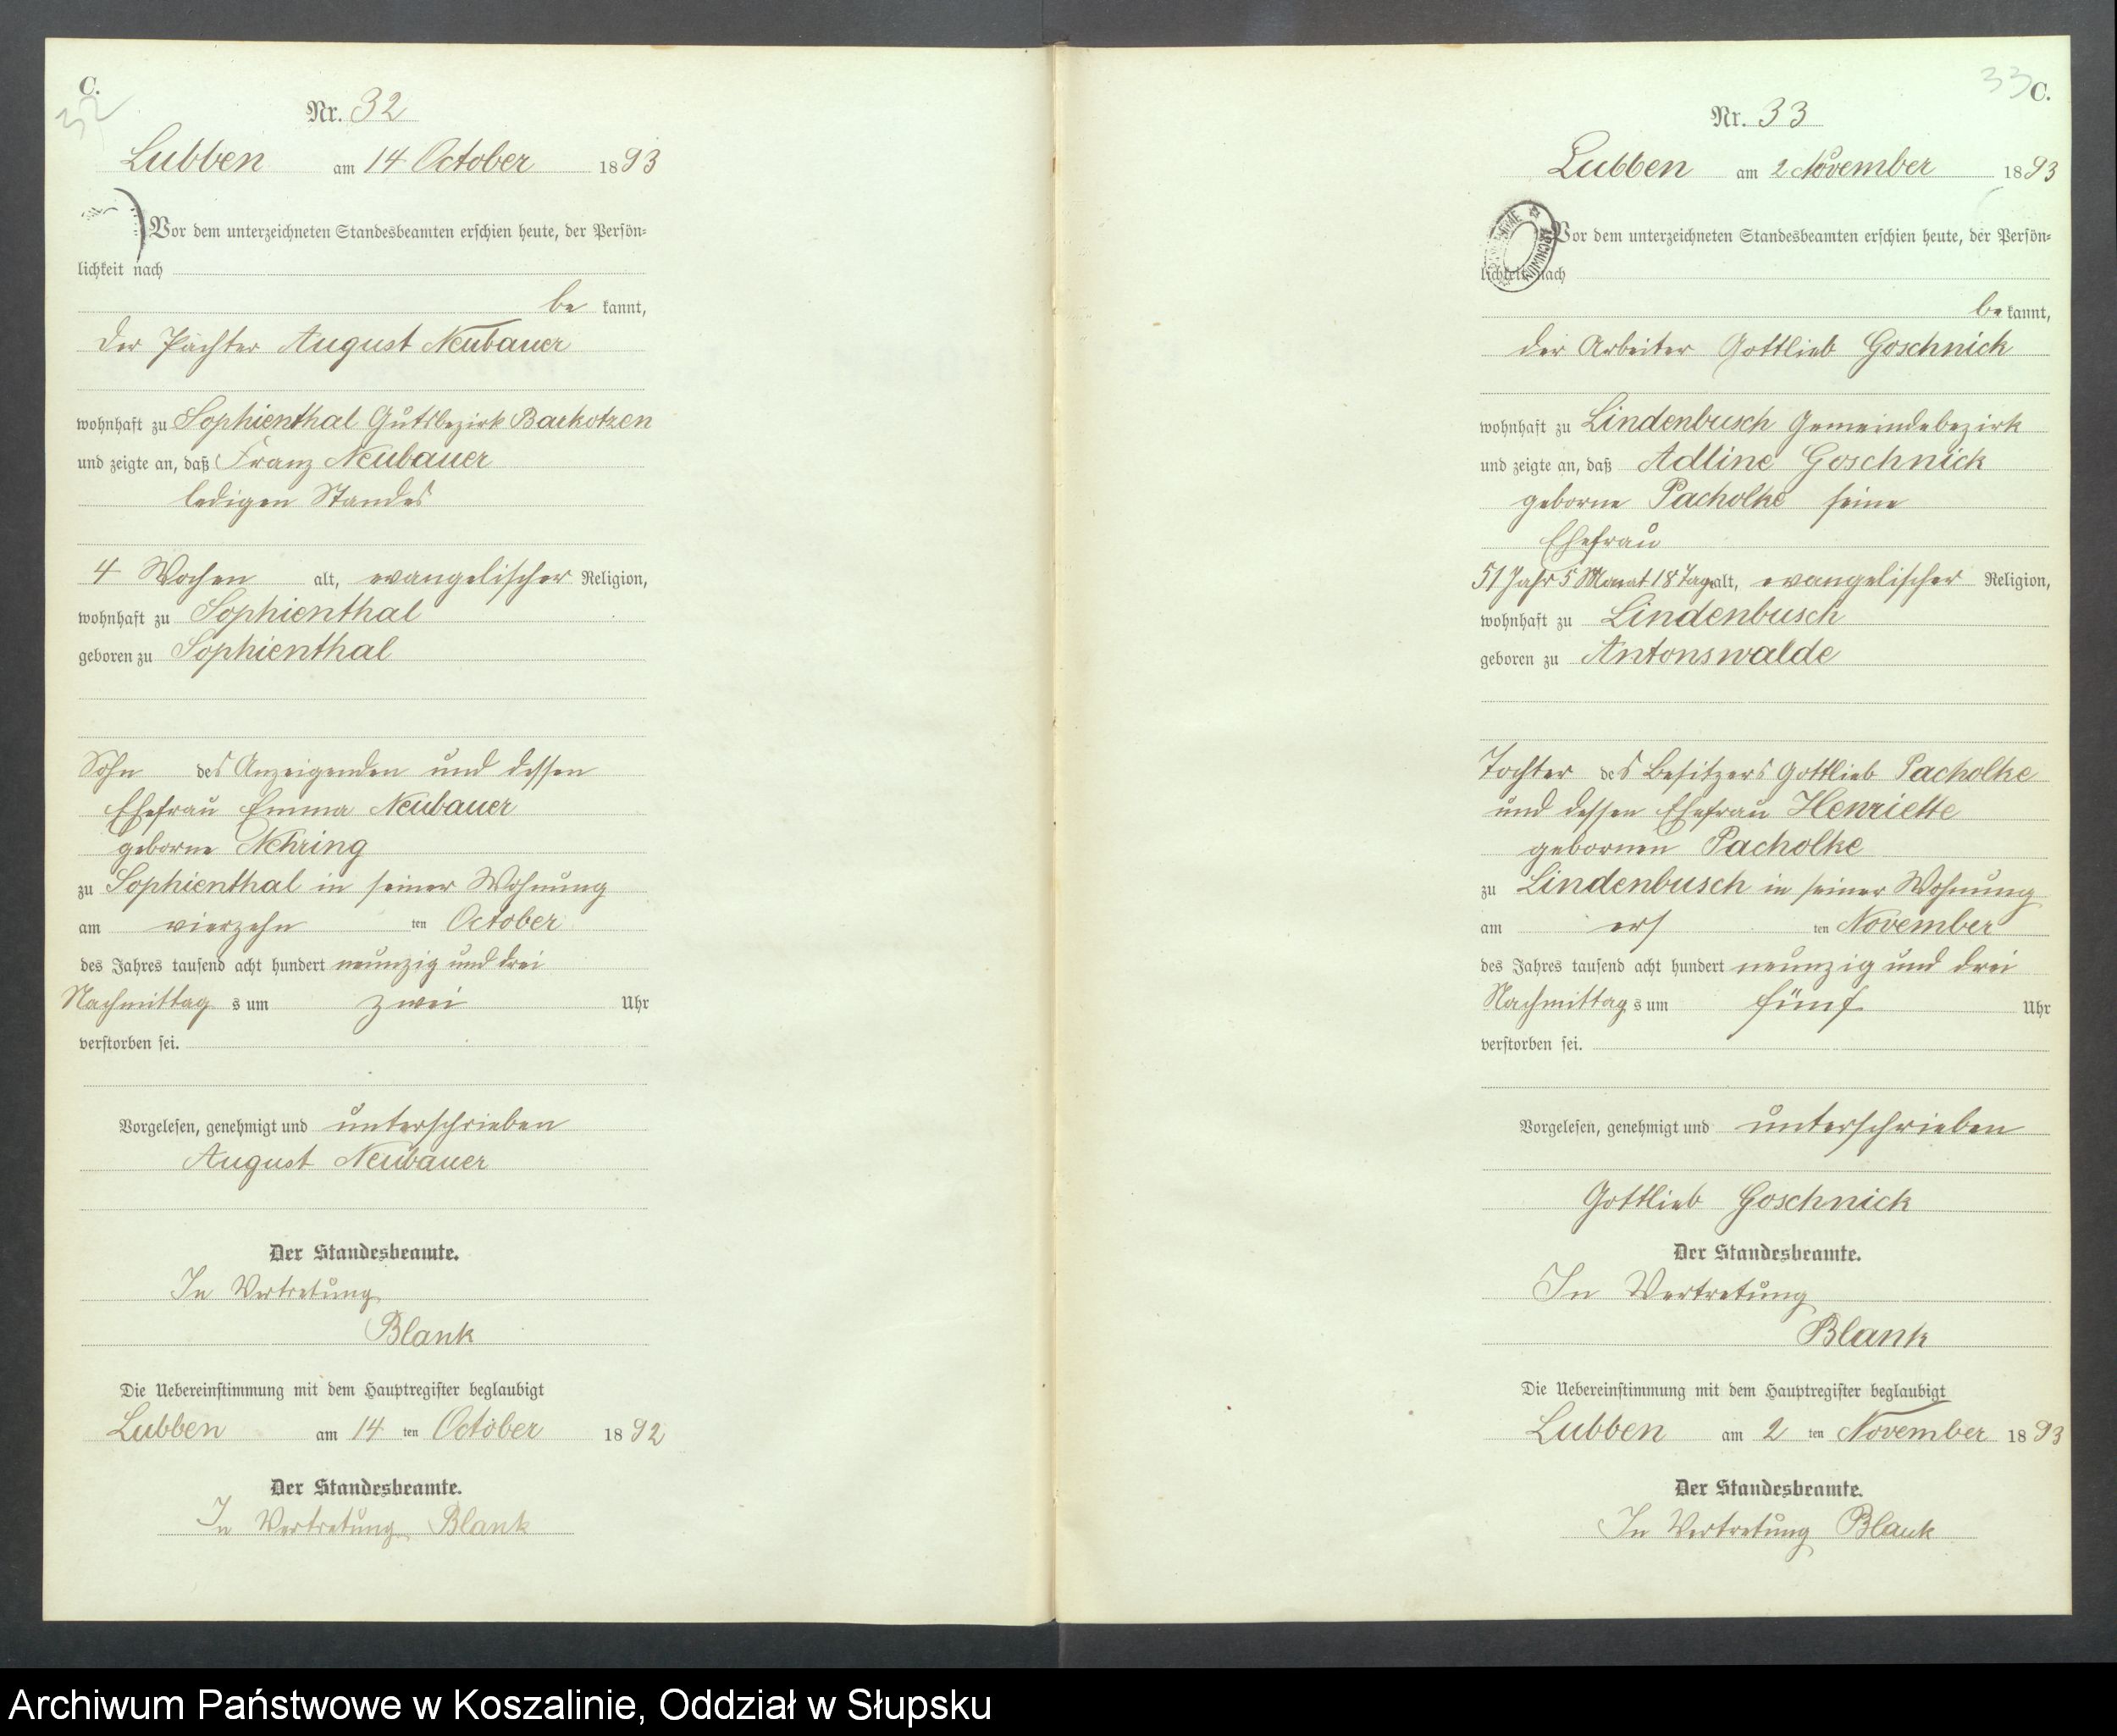 C.
32
Nr. 32
Lubben am 14 October 1893
Vor dem unterzeichneten Standesbeamten erschien heute, der Persön=
lichkeit nach
be kannt,
der Pächter August Neubauer
wohnhaft zu Sophienthal Gutsbezirk Barkotzen
und zeigte an, daß Franz Neubauer
ledigen Standes
4 Wochen alt, evangelischer Religion,
wohnhaft zu Sophienthal
geboren zu Sophienthal
Sohn des Anzeigenden und dessen
Ehefrau Emma Neubauer
geborne Nehring
zu Sophienthal in seiner Wohnung
am vierzehn ten October
des Jahres tausend acht hundert neunzig und drei
Nachmittag s um zwei Uhr
verstorben sei.
Vorgelesen, genehmigt und unterschrieben
August Neubauer
Der Standesbeamte.
In Vertretung
Blank
Die Uebereinstimmung mit dem Hauptregister beglaubigt
Lubben am 14 ten October 1892
Der Standesbeamte.
In Vertretung Blank
33 C.
Nr. 33
Lubben am 2 November 1893
Vor dem unterzeichneten Standesbeamten erschien heute, der Persön=
lichkeit nach
be kannt,
der Arbeiter Gottlieb Goschnick
wohnhaft zu Lindenbusch Gemeindebezirk
und zeigte an, daß Adline Goschnick
geborne Pacholke seine
Ehefrau
51 Jahr 5 Monat 18 Tage alt, evangelischer Religion,
wohnhaft zu Lindenbusch
geboren zu Antonswalde
Tochter des Besitzers Gottlieb Pacholke
und dessen Ehefrau Henriette
gebornen Pacholke
zu Lindenbusch in seiner Wohnung
am ers ten November
des Jahres tausend acht hundert neunzig und drei
Nachmittag s um fünf Uhr
verstorben sei.
Vorgelesen, genehmigt und unterschrieben
Gottlieb Goschnick
Der Standesbeamte.
In Vertretung
Blank
Die Uebereinstimmung mit dem Hauptregister beglaubigt
Lubben am 2 ten November 1893
Der Standesbeamte.
In Vertretung Blank
Archiwum Państwowe w Koszalinie, Oddział w Słupsku